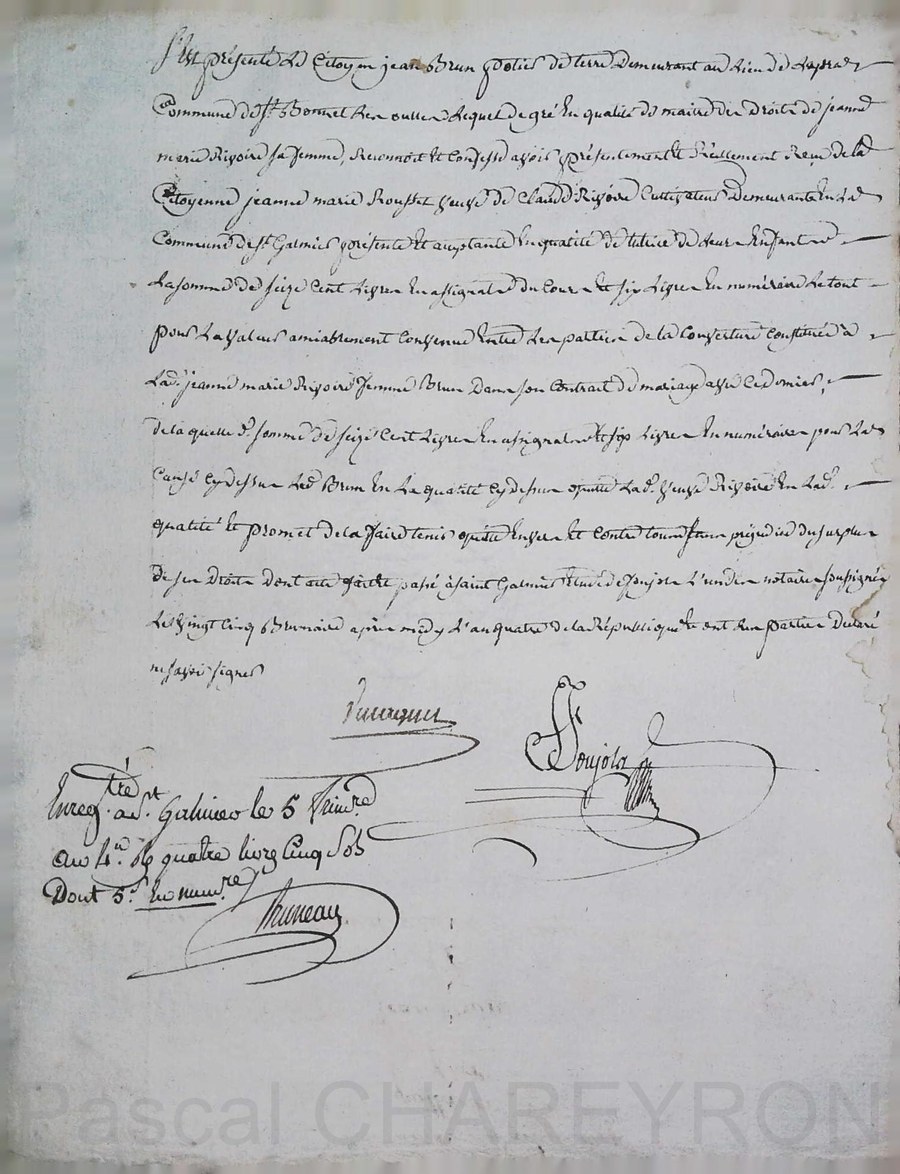 S'est présenté Le Citoyen jean Brun potier de terre Demeurant au Lieu de Lapra
Commune de St. Bonnet Les oulles Lequel de gré En qualité de maitre des Droits de jeanne
marie Rivoire sa femme, Reconnoit Et Confesse avoir présentement Et Réellement Reçu de la
Citoyenne jeanne marie Rousset veuve de Claude Rivoire Cultivateur Demeurante En La
Commune de St. Galmier présente Et acceptante En qualité de tutrice de Leurs Enfants
La somme de seize Cent Livres En assignats du Cours Et six Livres En numéraire Le tout
pour La valeur amiablement Convenue Entre Les parties de la Couverture Constituée à
Lad. jeanne marie Rivoire femme Brun Dans son Contrat de mariage avec Ce dernier,
de laquelle d. somme de seize Cent Livres En assignats Et six Livres En numéraire pour La
Cause Cy dessus Led. Brun En La qualité Cy dessus quitte Lad. veuve Rivoire En Lad.
qualité Et promet de la faire tenir quitte Envers Et Contre tous sans préjudice du surplus
de ses Droits Dont acte fait Et passé à saint Galmier Etude de Poujols L'un des notaires soussignés
Le vingt Cinq Brumaire après midy L'an quatre de la République Et ont Les parties Déclaré
ne savoir signer
Poujols
Enregtré. a St. Galmier le 5 frimre
an 4e. R quatre livre Cinq Sols
Dont 5s. En numre
Bruneau
Pascal CHAREYRON